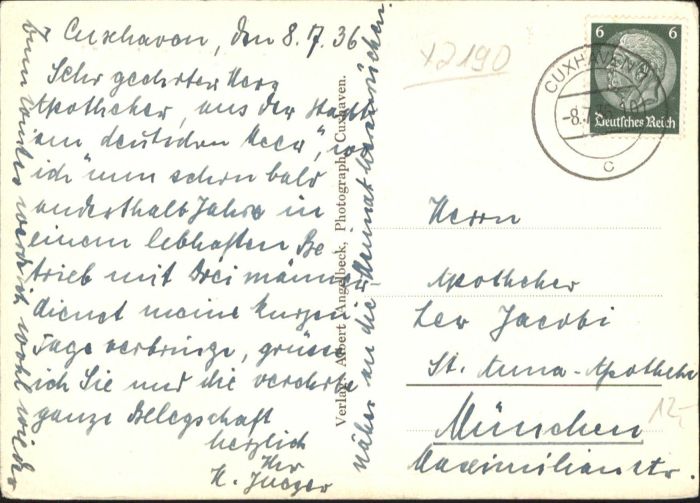 Cuxhaven, den 8.7.36
Sehr geehrter Herr
Apotheker, aus der Stadt
am deutschen Meer, wo
ich nun schon bald
anderthalb Jahre in
einem lebhaften Be
trieb mit Drei männer
dienst meine kurzen
Tage verbringe, grüsse
ich Sie und die verehrte
ganze Belegschaft
herzlich
Ihr
näher an die Heimat heranrücken.
wohl wieder
Verlag: Albert Angelbeck, Photograph, Cuxhaven.
+2190
6 6
Deutsches Reich
CUXHAVEN
-8.
c
Herrn
Apotheker
Leo Jacobi
St. Anna-Apotheke
München
Maximilianstr.
12,-